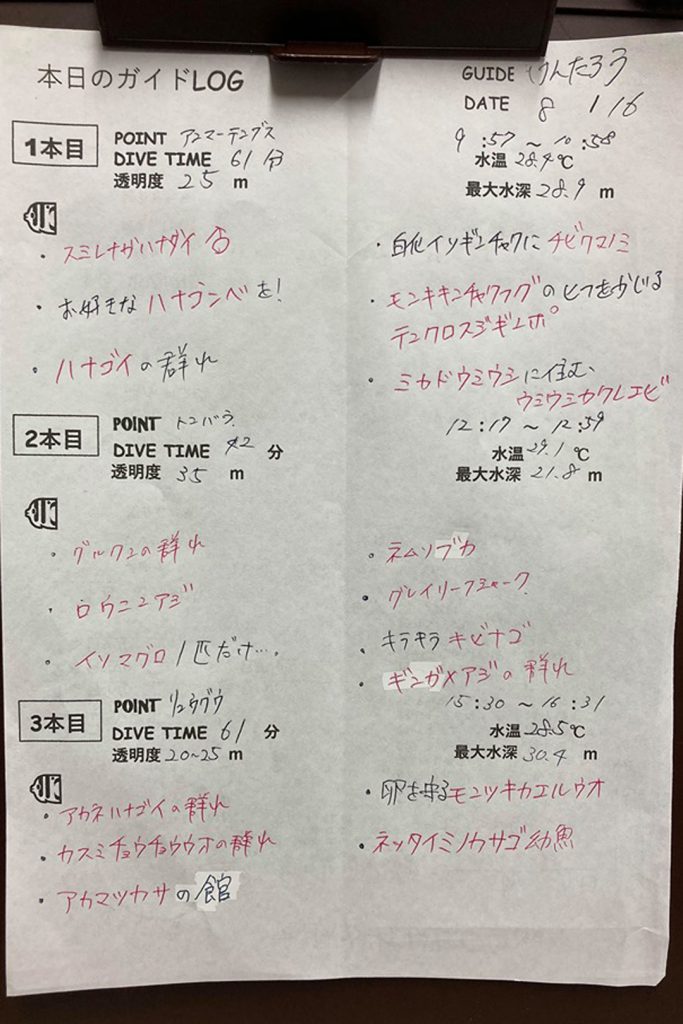 本日のガイドLOG
GUIDE けんたろう
DATE 8 / 16
1本目
POINT アンマーテングス
DIVE TIME 61 分
透明度 25 m
9:57 ~ 10:58
水温 28.4℃
最大水深 28.9 m
・スミレナガハナダイ♂
・お好きなハナゴンベを!
・ハナゴイの群れ
・白化イソギンチャクにチビクマノミ
・モンキキンチャクフグのヒフをかじる
テンクロスジギンポ
・ミカドウミウシに住む、
ウミウシカクレエビ
2本目
POINT トンバラ
DIVE TIME 42 分
透明度 35 m
12:17 ~ 12:59
水温 29.1 ℃
最大水深 21.8 m
・グルクンの群れ
・ロウニンアジ
・イソマグロ1匹だけ….
・ネムリブカ
・グレイリーフシャーク
・キラキラキビナゴ
・ギンガメアジの群れ
3本目
POINT リュウグウ
DIVE TIME 61 分
透明度 20~25 m
15:30 ~ 16:31
水温 28.5℃
最大水深 30.4 m
・アカネハナゴイの群れ
・カスミチョウチョウウオの群れ
・アカマツカサの館
・卵を守るモンツキカエルウオ
・ネッタイミノカサゴ幼魚